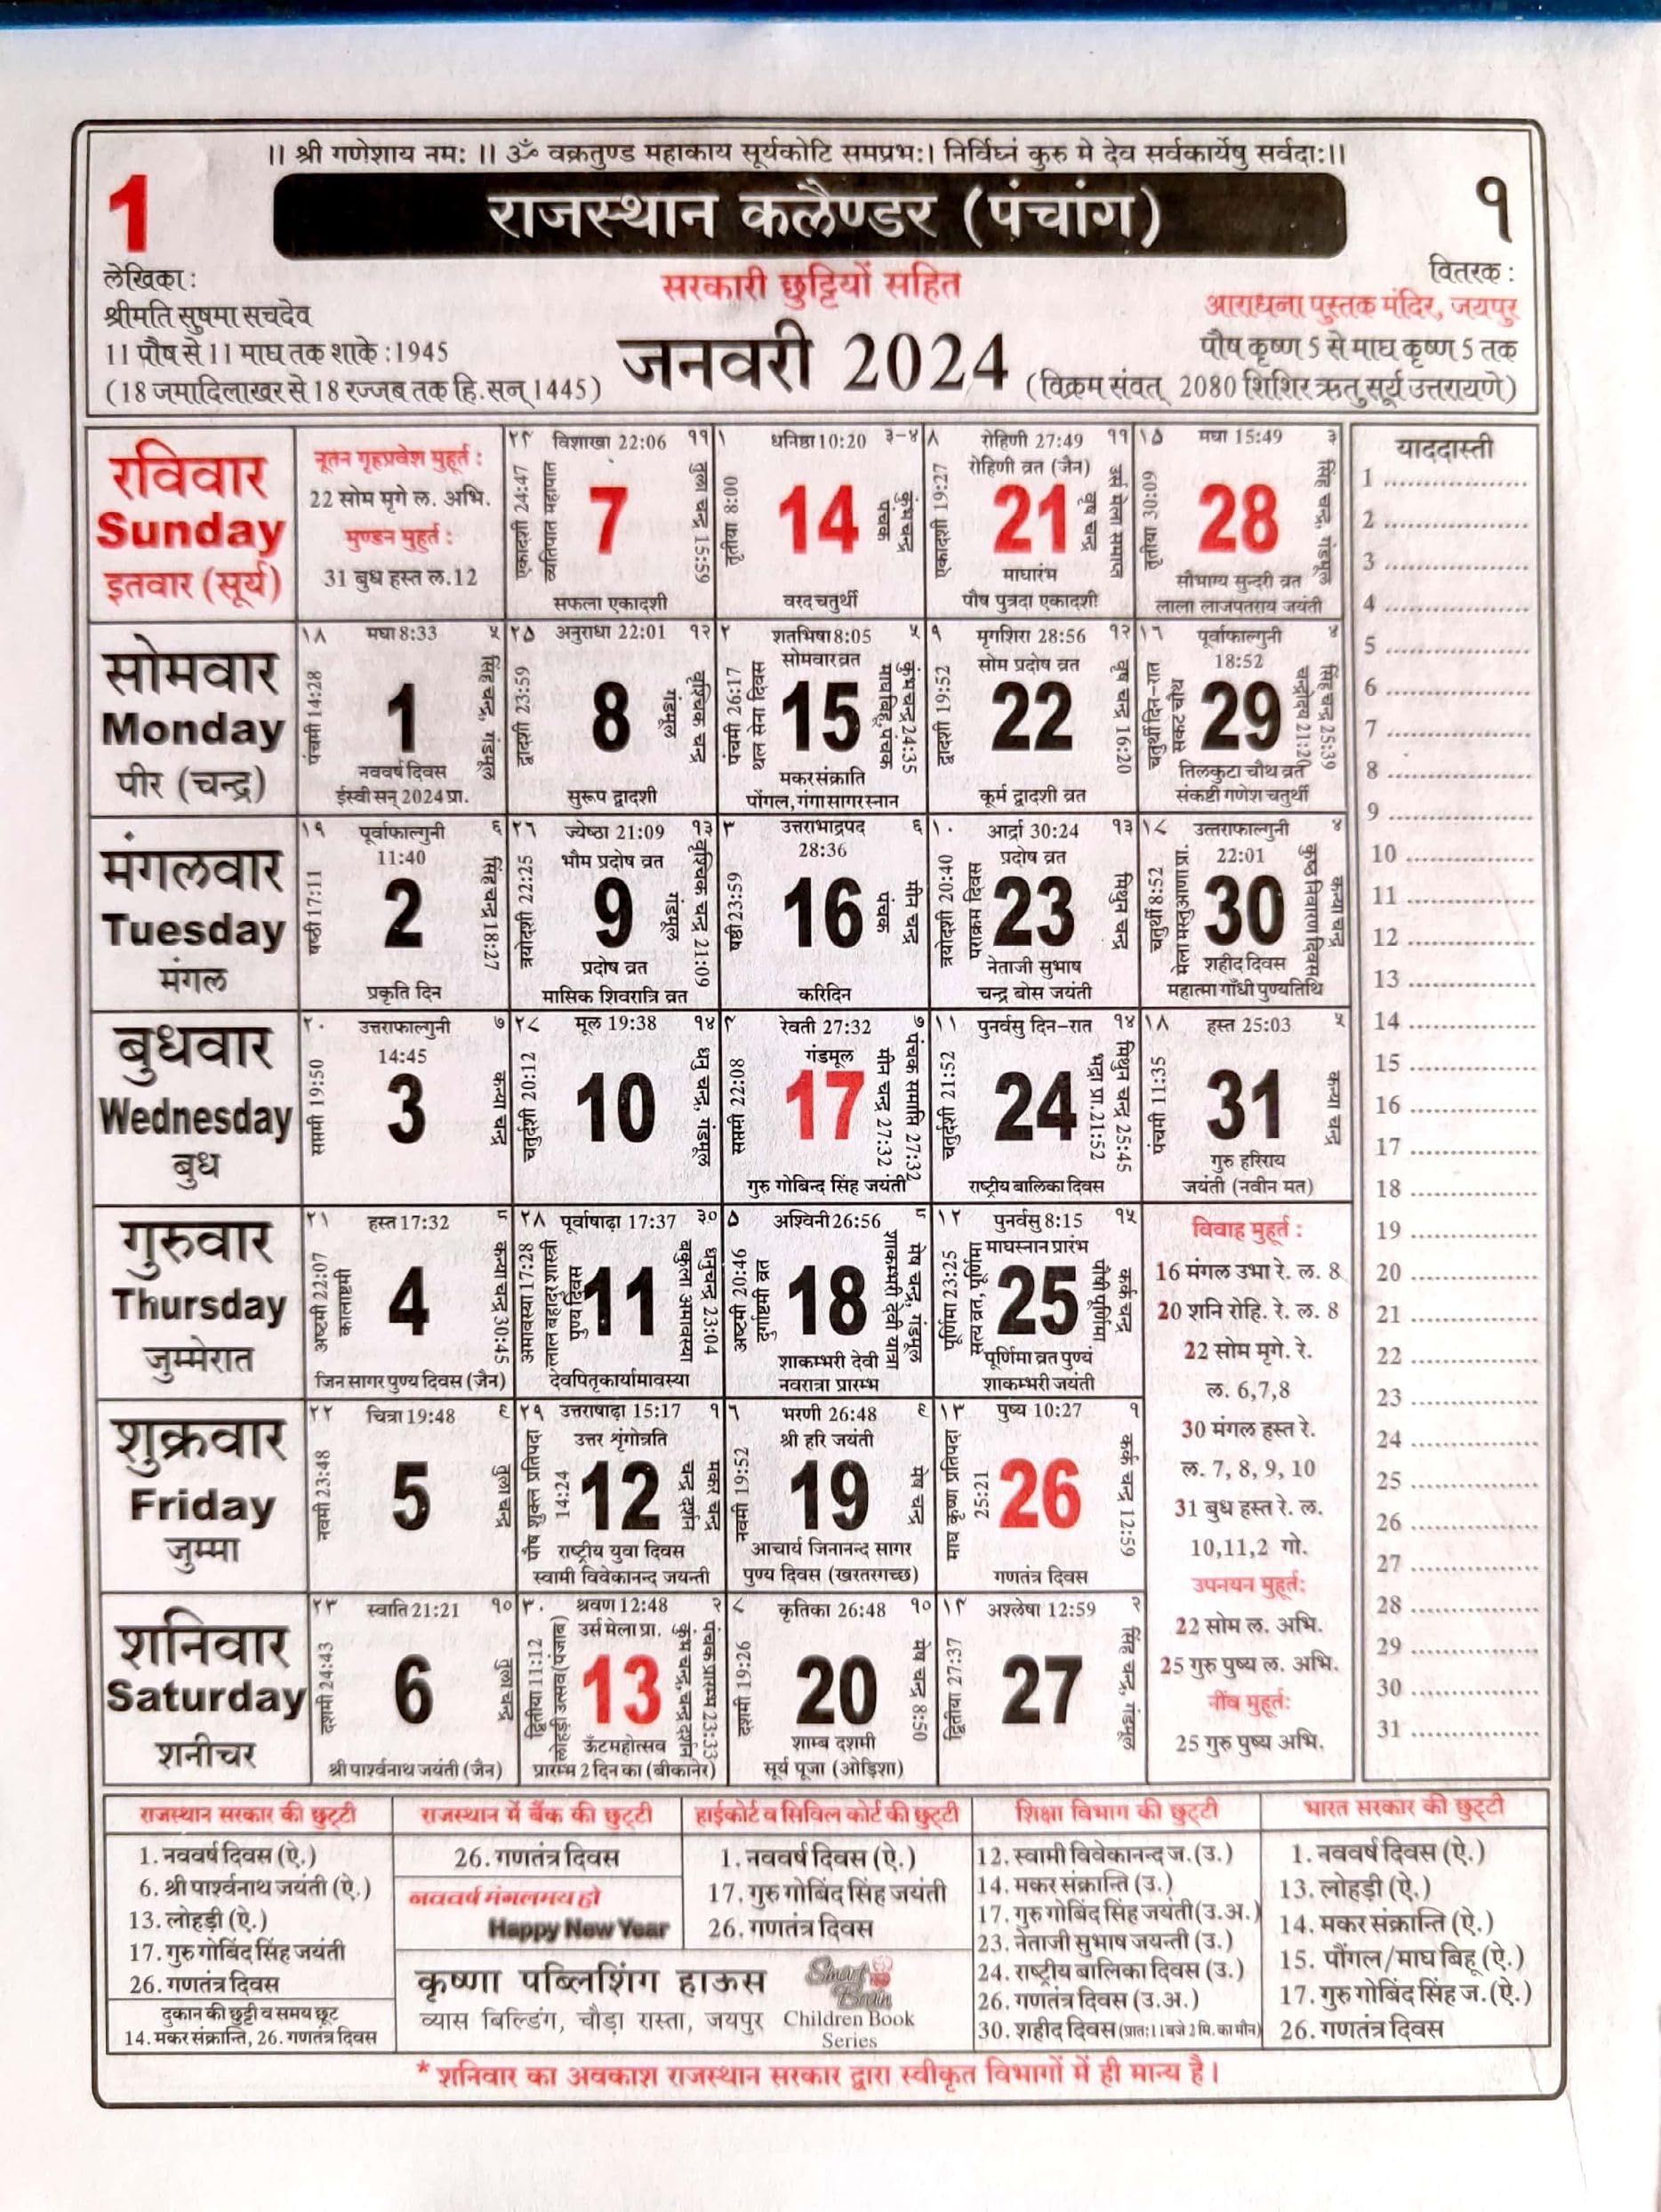 ।। श्री गणेशाय नमः ।। ॐ वक्रतुण्ड महाकाय सूर्यकोटि समप्रभः। निर्विघ्नं कुरु मे देव सर्वकार्येषु सर्वदाः।।
1
राजस्थान कलैण्डर (पंचांग)
१
लेखिका :
सरकारी छुट्टियों सहित
वितरक :
श्रीमति सुषमा सचदेव
आराधना पुस्तक मंदिर, जयपुर
11 पौष से 11 माघ तक शाके :1945
जनवरी 2024
पौष कृष्ण 5 से माघ कृष्ण 5 तक
(18 जमादिलाखर से 18 रज्जब तक हि.सन् 1445)
(विक्रम संवत् 2080 शिशिर ऋतु सूर्य उत्तरायणे)
रविवार
Sunday
इतवार (सूर्य)
नूतन गृहप्रवेश मुहूर्त :
22 सोम मृगे ल. अभि.
मुण्डन मुहूर्त :
31 बुध हस्त ल.12
विशाखा 22:06
११
एकादशी 24:47
व्यतिपात महापात
7
तुला चन्द्र 15:59
सफला एकादशी
धनिष्ठा 10:20
३-४
तृतीया 8:00
14
कुंभ चन्द्र
पंचक
वरद चतुर्थी
रोहिणी 27:49
११
रोहिणी व्रत (जैन)
एकादशी 19:27
21
वृष चन्द्र
उर्स मेला समाप्त
माघारंभ
पौष पुत्रदा एकादशी
मघा 15:49
३
तृतीया 30:09
28
सिंह चन्द्र, गंडमूल
सौभाग्य सुन्दरी व्रत
लाला लाजपतराय जयंती
सोमवार
Monday
पीर (चन्द्र)
मघा 8:33
५
पंचमी 14:28
1
सिंह चन्द्र, गंडमूल
नववर्ष दिवस
ईस्वी सन् 2024 प्रा.
अनुराधा 22:01
१२
द्वादशी 23:59
8
वृश्चिक चन्द्र
गंडमूल
सुरूप द्वादशी
शतभिषा 8:05
५
सोमवार व्रत
पंचमी 26:17
थल सेना दिवस
15
माघ बिहू, पंचक
कुंभ चन्द्र 24:35
मकर संक्राति
पोंगल, गंगा सागर स्नान
मृगशिरा 28:56
१२
सोम प्रदोष व्रत
द्वादशी 19:52
22
वृष चन्द्र 16:20
कूर्म द्वादशी व्रत
पूर्वाफाल्गुनी
४
18:52
चतुर्थी दिन-रात
सकट चौथ
29
सिंह चन्द्र 25:39
तिलकुटा चौथ व्रत
संकष्टी गणेश चतुर्थी
मंगलवार
Tuesday
मंगल
पूर्वाफाल्गुनी
६
11:40
षष्ठी 17:11
2
सिंह चन्द्र 18:27
प्रकृति दिन
ज्येष्ठा 21:09
१३
भौम प्रदोष व्रत
त्रयोदशी 22:25
9
वृश्चिक चन्द्र 21:09
गंडमूल
प्रदोष व्रत
मासिक शिवरात्रि व्रत
उत्तराभाद्रपद
६
28:36
षष्ठी 23:59
16
मीन चन्द्र
पंचक
करिदिन
आर्द्रा 30:24
१३
प्रदोष व्रत
त्रयोदशी 20:40
पराक्रम दिवस
23
मिथुन चन्द्र
नेताजी सुभाष
चन्द्र बोस जयंती
उत्तराफाल्गुनी
४
22:01
चतुर्थी 8:52
30
कुष्ठ निवारण दिवस
कन्या चन्द्र
शहीद दिवस
महात्मा गाँधी पुण्यतिथि
बुधवार
Wednesday
बुध
उत्तराफाल्गुनी
७
14:45
सप्तमी 19:50
3
कन्या चन्द्र
मूल 19:38
१४
चतुर्दशी 20:12
10
धनु चन्द्र, गंडमूल
रेवती 27:32
७
गंडमूल
सप्तमी 22:08
17
मीन चन्द्र 27:32
पंचक समाप्ति 27:32
गुरु गोबिन्द सिंह जयंती
पुनर्वसु दिन-रात
१४
चतुर्दशी 21:52
24
भद्रा प्रा.21:52
मिथुन चन्द्र 25:45
राष्ट्रीय बालिका दिवस
हस्त 25:03
५
पंचमी 11:35
31
कन्या चन्द्र
गुरु हरिराय
जयंती (नवीन मत)
गुरुवार
Thursday
जुम्मेरात
हस्त 17:32
८
अष्टमी 22:07
कालाष्टमी
4
कन्या चन्द्र 30:45
जिन सागर पुण्य दिवस (जैन)
पूर्वाषाढ़ा 17:37
३०
अमावस्या 17:28
लाल बहादुर शास्त्री
पुण्य दिवस
11
बकुला अमावस्या
धनु चन्द्र 23:04
देवपितृकार्यामावस्या
अश्विनी 26:56
८
अष्टमी 20:46
दुर्गाष्टमी व्रत
18
शाकम्भरी देवी यात्रा
मेष चन्द्र, गंडमूल
शाकम्भरी देवी
नवरात्रा प्रारम्भ
पुनर्वसु 8:15
१५
माघस्नान प्रारंभ
पूर्णिमा 23:25
सत्य व्रत, पूर्णिमा
25
पौषी पूर्णिमा
कर्क चन्द्र
पूर्णिमा व्रत पुण्यं
शाकम्भरी जयंती
विवाह मुहूर्त :
16 मंगल उभा रे. ल. 8
20 शनि रोहि. रे. ल. 8
22 सोम मृगे. रे.
ल. 6,7,8
30 मंगल हस्त रे.
ल. 7, 8, 9, 10
31 बुध हस्त रे. ल.
10,11,2 गो.
उपनयन मुहूर्तः
22 सोम ल. अभि.
25 गुरु पुष्य ल. अभि.
नींव मुहूर्तः
25 गुरु पुष्य अभि.
शुक्रवार
Friday
जुम्मा
चित्रा 19:48
९
नवमी 23:48
5
तुला चन्द्र
उत्तराषाढ़ा 15:17
१
उत्तर शृंगोन्नति
पौष शुक्ल प्रतिपदा
14:24
12
चन्द्र दर्शन
मकर चन्द्र
राष्ट्रीय युवा दिवस
स्वामी विवेकानन्द जयन्ती
भरणी 26:48
९
श्री हरि जयंती
नवमी 19:52
19
मेष चन्द्र
आचार्य जिनानन्द सागर
पुण्य दिवस (खरतरगच्छ)
पुष्य 10:27
१
माघ कृष्ण प्रतिपदा
25:21
26
कर्क चन्द्र 12:59
गणतंत्र दिवस
शनिवार
Saturday
शनीचर
स्वाति 21:21
१०
दशमी 24:43
6
तुला चन्द्र
श्री पार्श्वनाथ जयंती (जैन)
श्रवण 12:48
२
उर्स मेला प्रा.
द्वितीया 11:12
लोहड़ी उत्सव (पंजाब)
13
कुंभ चन्द्र, चन्द्र दर्शन
पंचक प्रारम्भ 23:33
ऊँटमहोत्सव
प्रारम्भ 2 दिन का (बीकानेर)
कृतिका 26:48
१०
दशमी 19:26
20
मेष चन्द्र 8:50
शाम्ब दशमी
सूर्य पूजा (ओड़िशा)
अश्लेषा 12:59
२
द्वितीया 27:37
27
सिंह चन्द्र, गंडमूल
याददास्ती
1
2
3
4
5
6
7
8
9
10
11
12
13
14
15
16
17
18
19
20
21
22
23
24
25
26
27
28
29
30
31
राजस्थान सरकार की छुट्टी
1. नववर्ष दिवस (ऐ.)
6. श्री पार्श्वनाथ जयंती (ऐ.)
13. लोहड़ी (ऐ.)
17. गुरु गोबिंद सिंह जयंती
26. गणतंत्र दिवस
दुकान की छुट्टी व समय छूट
14. मकर संक्रान्ति, 26. गणतंत्र दिवस
राजस्थान में बैंक की छुट्टी
26. गणतंत्र दिवस
नववर्ष मंगलमय हो
Happy New Year
हाईकोर्ट व सिविल कोर्ट की छुट्टी
1. नववर्ष दिवस (ऐ.)
17. गुरु गोबिंद सिंह जयंती
26. गणतंत्र दिवस
कृष्णा पब्लिशिंग हाऊस
व्यास बिल्डिंग, चौड़ा रास्ता, जयपुर
Smart Brain
Children Book
Series
शिक्षा विभाग की छुट्टी
12. स्वामी विवेकानन्द ज. (उ.)
14. मकर संक्रान्ति (उ.)
17. गुरु गोबिंद सिंह जयंती (उ.अ.)
23. नेताजी सुभाष जयन्ती (उ.)
24. राष्ट्रीय बालिका दिवस (उ.)
26. गणतंत्र दिवस (उ.अ.)
30. शहीद दिवस (प्रातः11 बजे 2 मि. का मौन)
भारत सरकार की छुट्टी
1. नववर्ष दिवस (ऐ.)
13. लोहड़ी (ऐ.)
14. मकर संक्रान्ति (ऐ.)
15. पौंगल/माघ बिहू (ऐ.)
17. गुरु गोबिंद सिंह ज.(ऐ.)
26. गणतंत्र दिवस
* शनिवार का अवकाश राजस्थान सरकार द्वारा स्वीकृत विभागों में ही मान्य है।